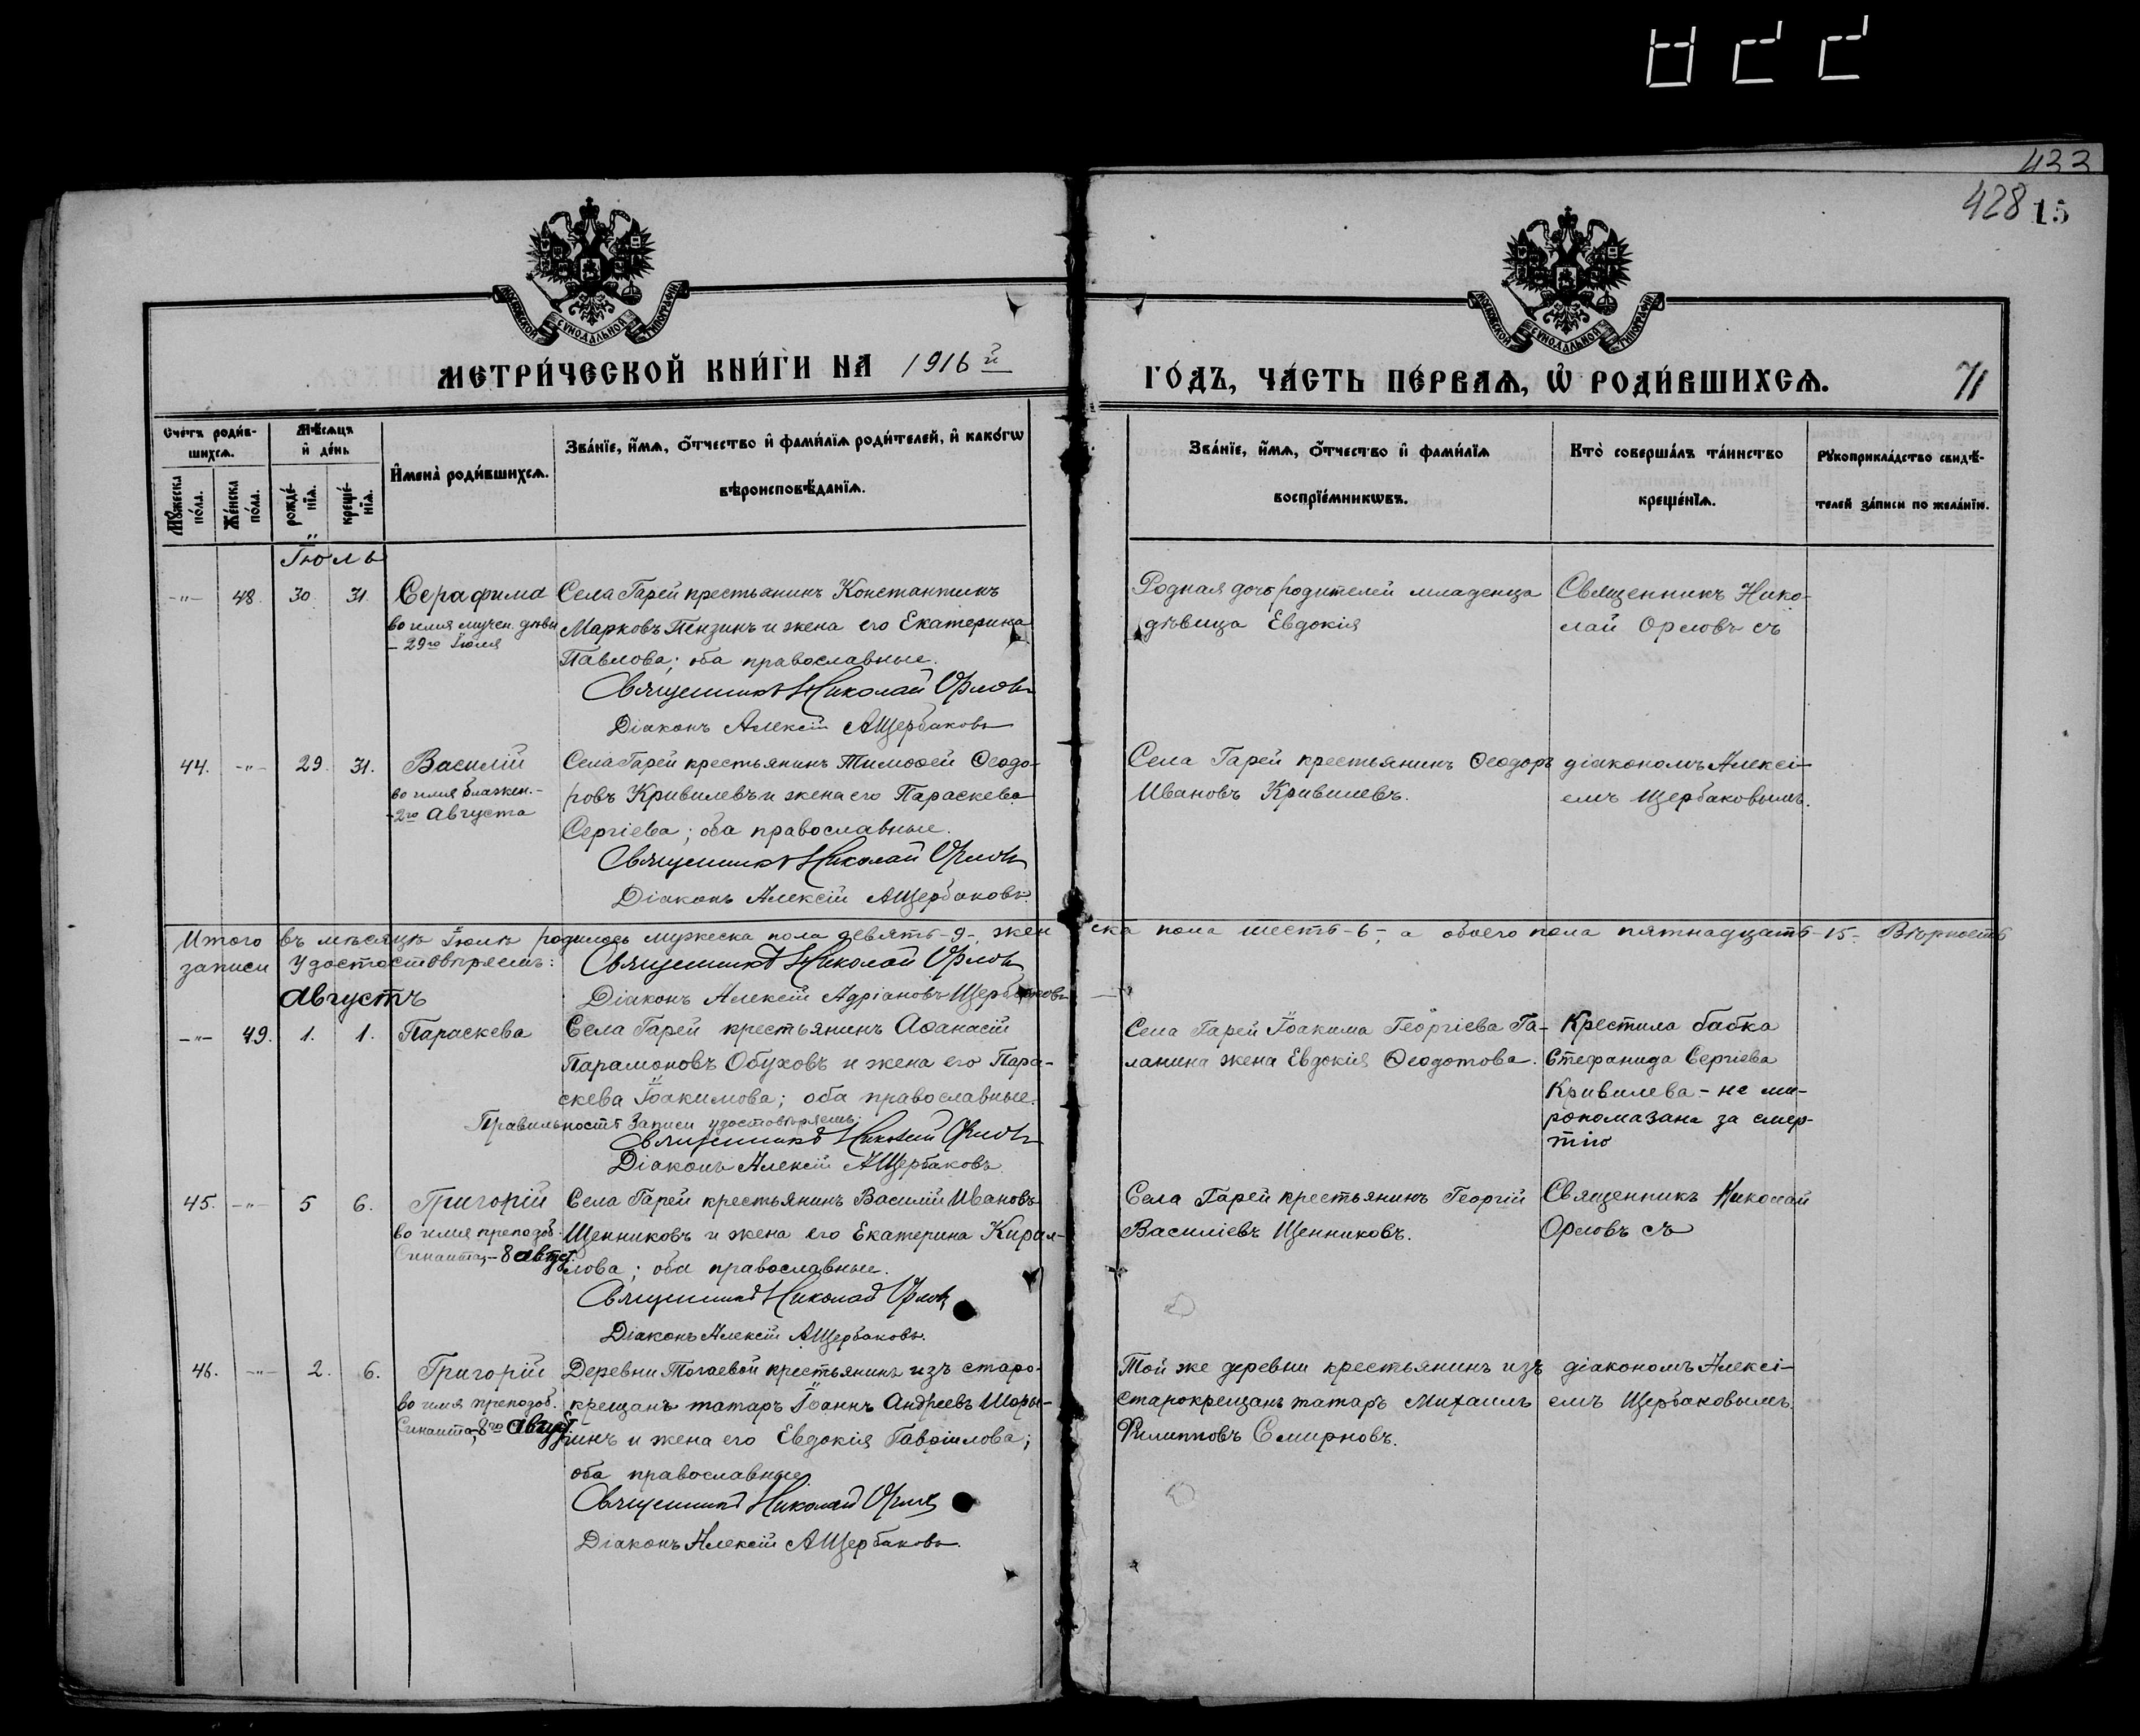 433
428 15
МОСКОВСКОЙ СУНОДАЛЬНОЙ ТИПОГРАФІИ
МОСКОВСКОЙ СУНОДАЛЬНОЙ ТИПОГРАФІИ
МЕТРИ́ЧЕСКОЙ КНИ́ГИ НА 1916 й
ГО́ДЪ, ЧА́СТЬ ПЕ́РВАѦ, Ѡ҆ РОДИ́ВШИХСѦ.
71
Сче́тъ роди́в-
шихсѧ.
Мꙋ́жеска по́ла.
Же́нска по́ла.
Мѣ́сѧцъ
и҆ де́нь
рожде́-
нїѧ.
креще́-
нїѧ.
И҆мена̀ роди́вшихсѧ.
Зва́нїе, и҆́мѧ, ѻ҆́тчество и҆ фами́лїѧ роди́телей, и҆ како́гѡ
вѣроисповѣ́данїѧ.
Зва́нїе, и҆́мѧ, ѻ҆́тчество и҆ фами́лїѧ
воспрїе́мникѡвъ.
Кто̀ соверша́лъ та́инство
креще́нїѧ.
Рꙋкоприкла́дство свидѣ́-
телей за́писи по жела́нїю.
Іюль
-"- 48. 30. 31. Серафима
во имя мучен. дѣвы
- 29го Іюля
Села Гарей крестьянинъ Константинъ
Марковъ Пензинъ и жена его Екатерина
Павлова; оба православные.
Священникъ Николай Орловъ
Діаконъ Алексій АЩербаковъ
Родная дочь родителей младенца
дѣвица Евдокія
Священникъ Нико-
лай Орловъ съ
44. -"- 29. 31. Василій
во имя блажен.-
-2го Августа
Села Гарей крестьянинъ Тимоѳей Ѳеодо-
ровъ Кривилевъ и жена его Параскева
Сергіева; оба православные.
Священникъ Николай Орловъ
Діаконъ Алексій АЩербаковъ.
Села Гарей крестьянинъ Ѳеодоръ
Ивановъ Кривилевъ.
діакономъ Алексі-
емъ Щербаковымъ.
Итого въ мѣсяцѣ Іюлѣ родилось мужеска пола девять -9-, женска пола шесть -6-, а обоего пола пятнадцать -15-. Вѣрность
записи удостовѣряемъ: Священникъ Николай Орловъ
Діаконъ Алексій Адріановъ Щербаковъ
Августъ
-"- 49. 1. 1. Параскева
Села Гарей крестьянинъ Аѳанасій
Парамоновъ Обуховъ и жена его Пара-
скева Іоакимова; оба православные.
Правильность записи удостовѣряемъ:
Священникъ Николай Орловъ
Діаконъ Алексій АЩербаковъ
Села Гарей Іоакима Георгіева Га-
ланина жена Евдокія Ѳеодотова.
Крестила бабка
Стефанида Сергіева
Кривилева - не ми-
ропомазана за смер-
тію
45. -"- 5 6. Григорій
во имя преподоб.
Синаита, - 8 август.
Села Гарей крестьянинъ Василій Ивановъ
Щенниковъ и жена его Екатерина Кирил-
лова; оба православные.
Священникъ Николай Орловъ
Діаконъ Алексій АЩербаковъ.
Села Гарей крестьянинъ Георгій
Василіевъ Щенниковъ.
Священникъ Николай
Орловъ съ
46. -"- 2. 6. Григорій
во имя преподоб.
Синаита, 8го август
Деревни Тогаевой крестьянинъ изъ старо-
крещанъ татаръ Іоаннъ Андреевъ
и жена его Евдокія Гавріилова;
оба православные
Священникъ Николай Орловъ
Діаконъ Алексій АЩербаковъ.
Той же деревни крестьянинъ изъ
старокрещанъ татаръ Михаилъ
Филипповъ Смирновъ.
діакономъ Алексі-
емъ Щербаковымъ.